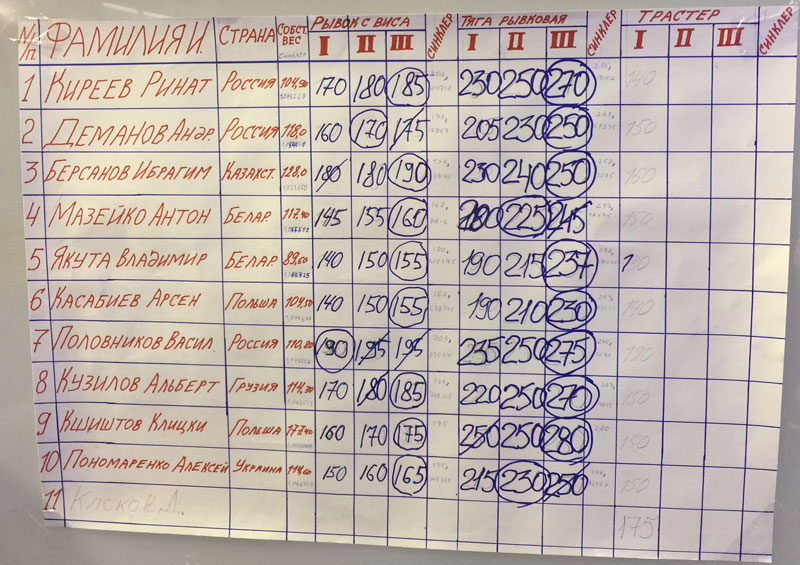 №/п ФАМИЛИЯ И. СТРАНА СОБСТ. ВЕС СИНКЛЕР РЫВОК С ВИСА I II III СИНКЛЕР ТЯГА РЫВКОВАЯ I II III СИНКЛЕР ТРАСТЕР I II III СИНКЛЕР
1 КИРЕЕВ РИНАТ РОССИЯ 104,90 170 180 185 230 250 270 140
2 ДЕМАНОВ АНДР. РОССИЯ 118,0 160 170 175 205 230 250 150
3 БЕРСАНОВ ИБРАГИМ КАЗАХСТ. 128,0 180 180 190 230 240 250 160
4 МАЗЕЙКО АНТОН БЕЛАР. 117,40 145 155 160 200 225 245 150
5 ЯКУТА ВЛАДИМИР БЕЛАР. 89,60 140 150 155 190 215 237 130
6 КАСАБИЕВ АРСЕН ПОЛЬША 104,50 140 150 155 190 210 230 140
7 ПОЛОВНИКОВ ВАСИЛ РОССИЯ 110,80 190 195 195 235 250 275 190
8 КУЗИЛОВ АЛЬБЕРТ ГРУЗИЯ 114,30 170 180 185 220 250 270 150
9 КШИШТОВ КЛИЦКИ ПОЛЬША 177,40 160 170 175 250 250 280 150
10 ПОНОМАРЕНКО АЛЕКСЕЙ УКРАИНА 114,60 150 160 165 215 230 250 150
11 КЛОКОВ Д. 175